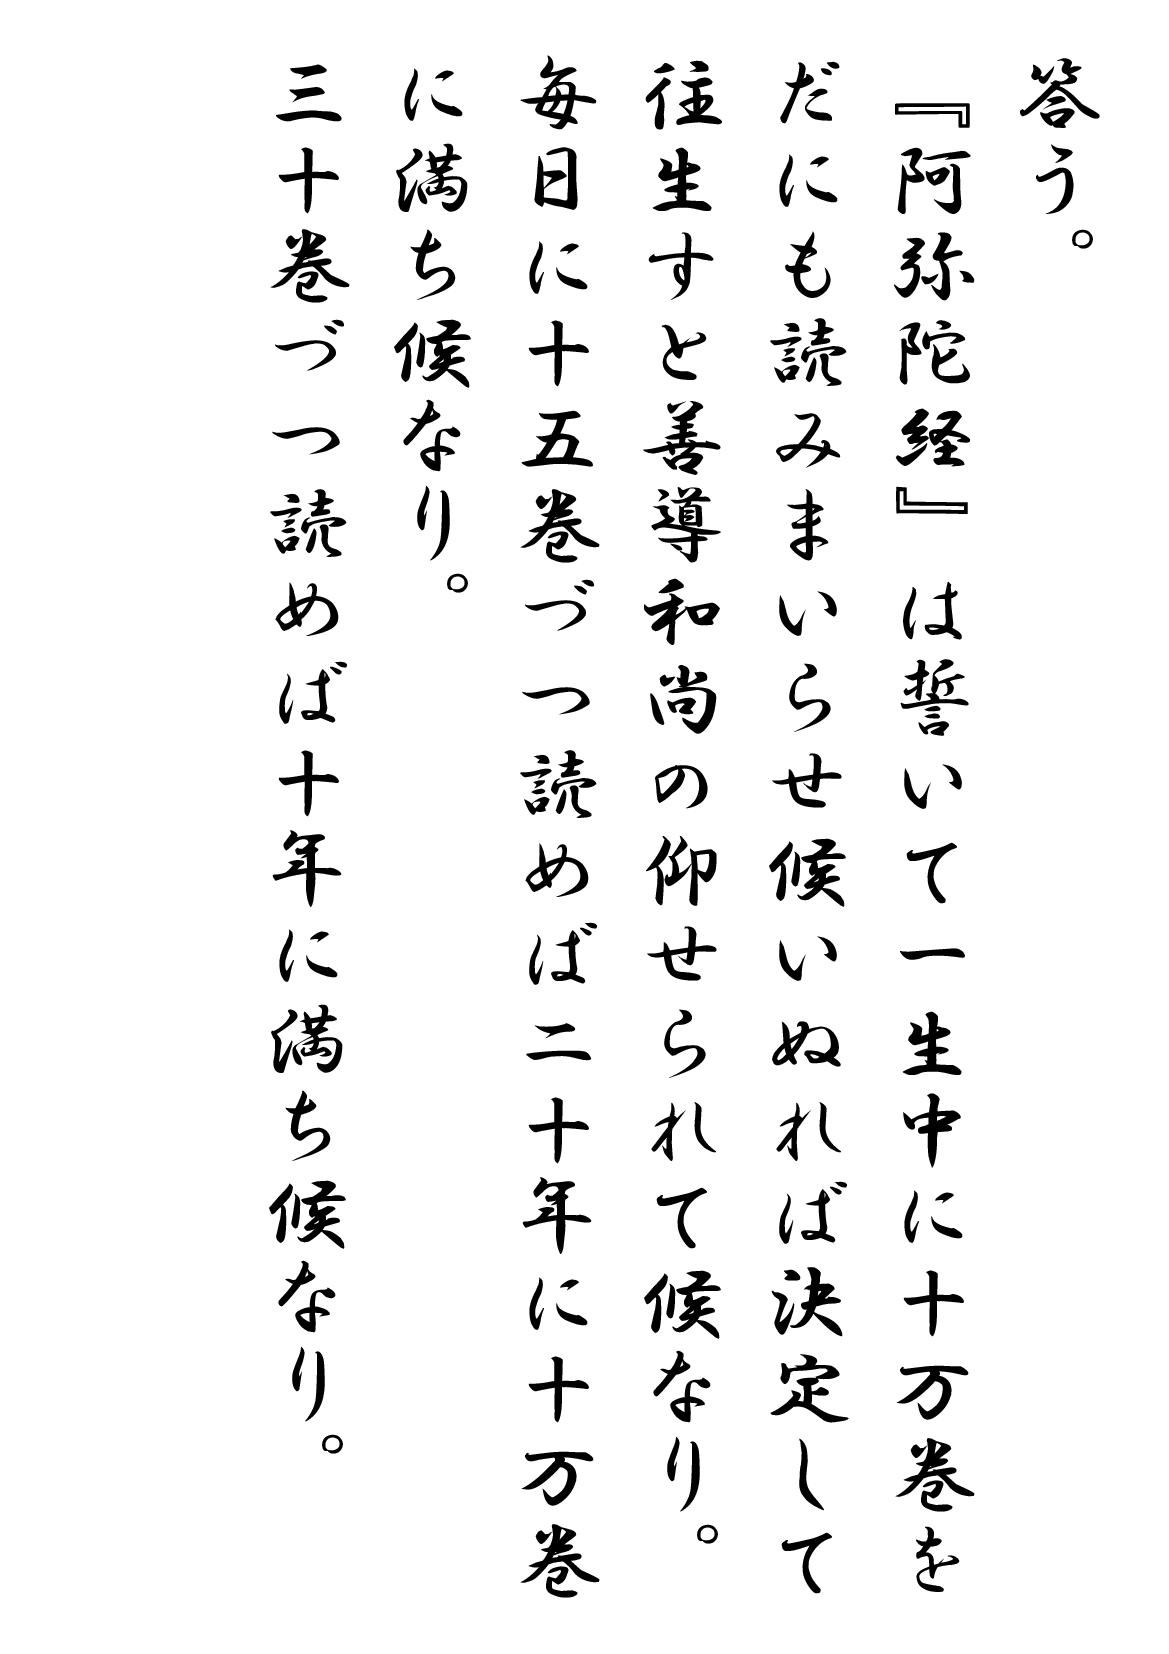 答う。
『阿弥陀経』は誓いて一生中に十万巻を
だにも読みまいらせ候いぬれば決定して
往生すと善導和尚の仰せられて候なり。
毎日に十五巻づつ読めば二十年に十万巻
に満ち候なり。
三十巻づつ読めば十年に満ち候なり。